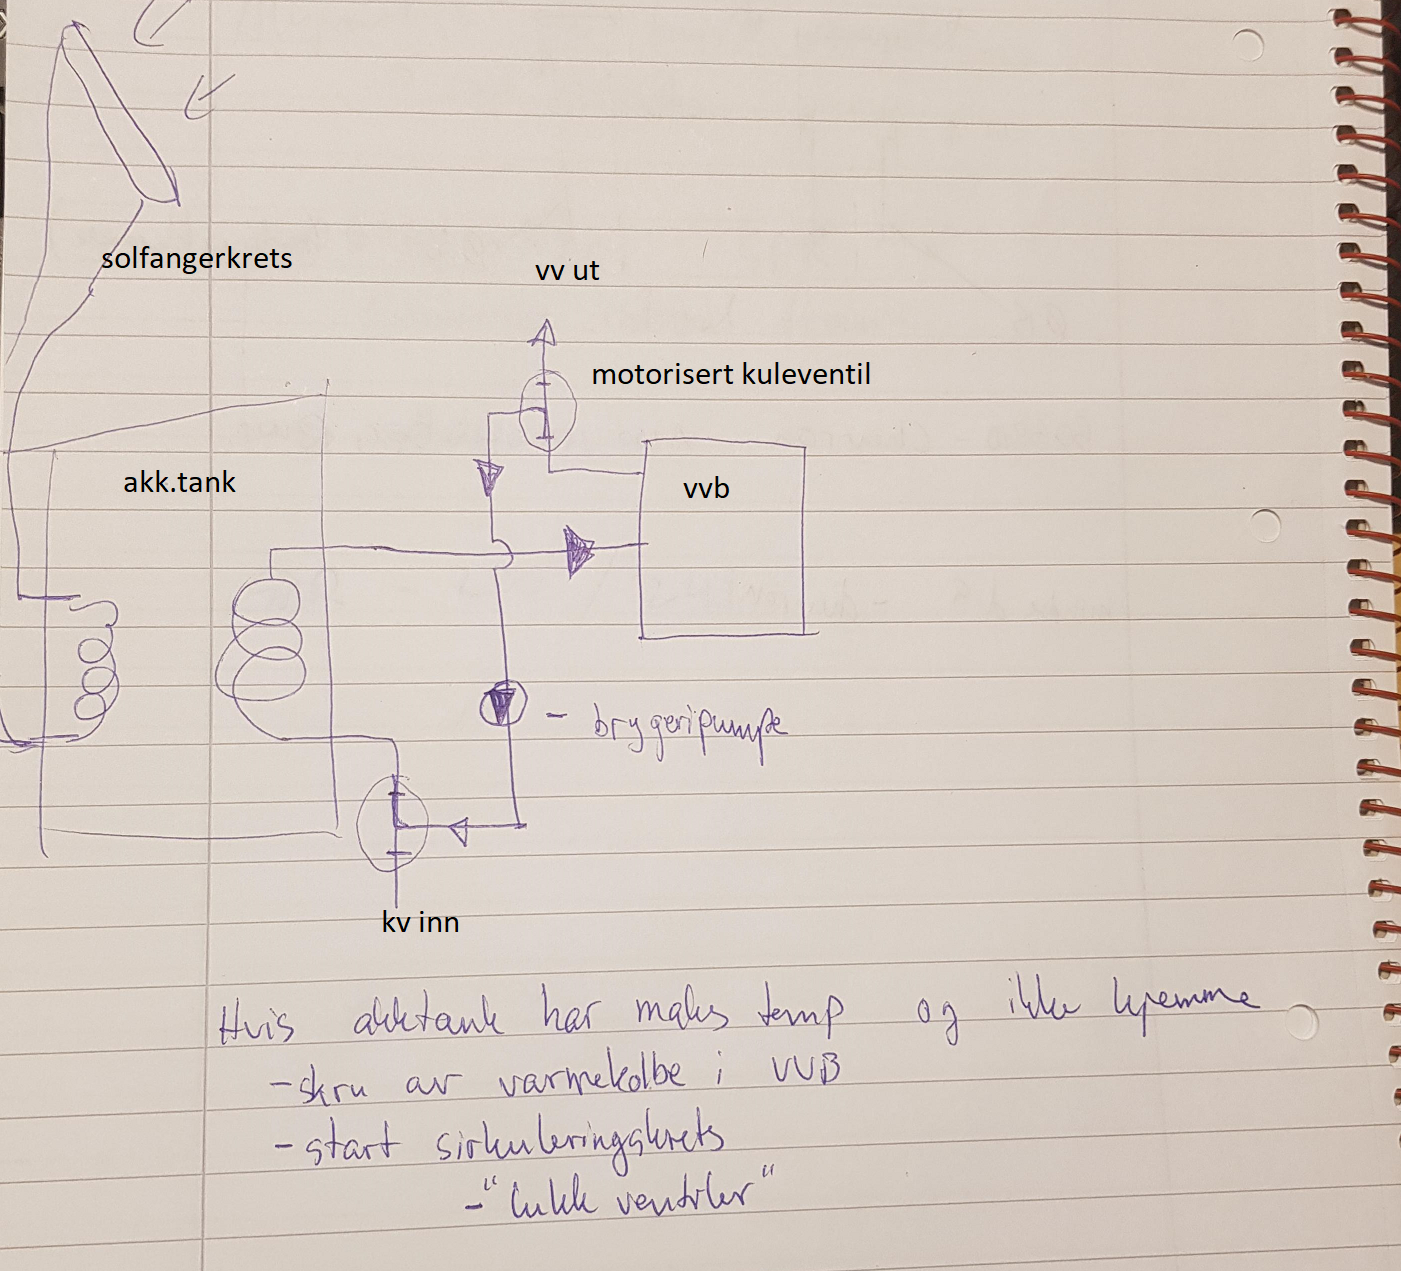 solfangerkrets
vv ut
motorisert kuleventil
akk.tank
vvb
- bryggeripumpe
kv inn
Hvis akktank har maks temp og ikke hjemme
- skru av varmekolbe i VVB
- start sirkuleringskrets
- "lukk ventiler"